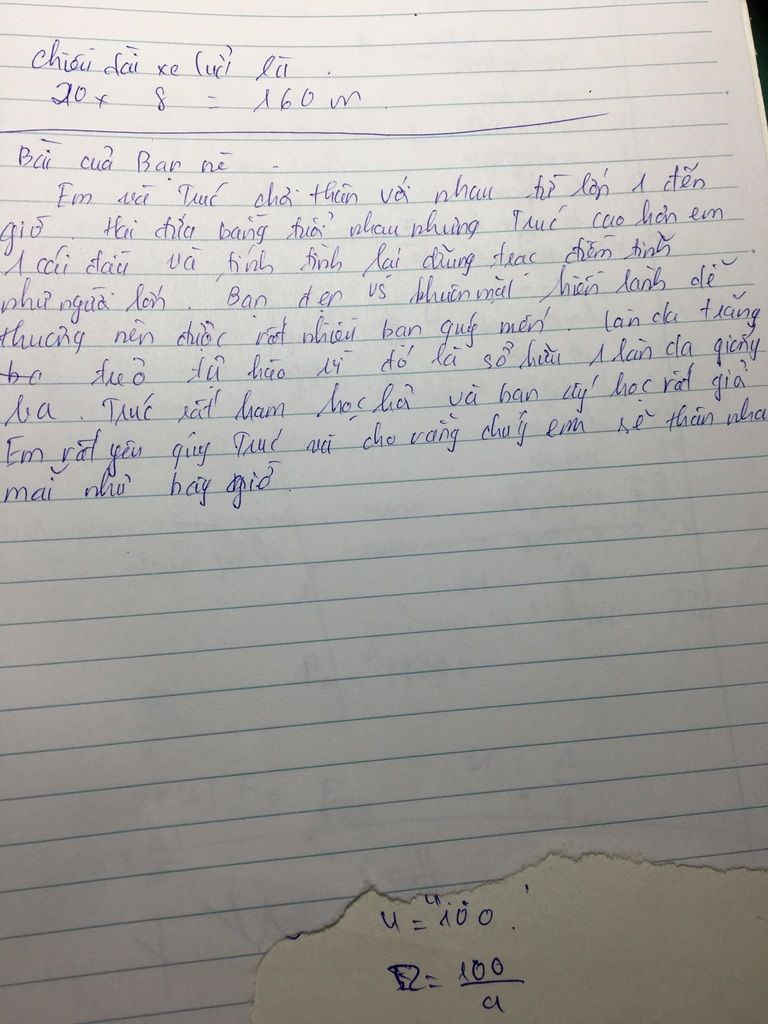 chiều dài xe lửa là.
20 x 8 = 160 m
Bài của Bạn nè.
Em và Trúc chơi thân với nhau từ lớp 1 đến
giờ. Hai đứa bằng tuổi nhau nhưng Trúc cao hơn em
1 cái đầu và tính tình lại
như người lớn. Bạn đẹp vs khuôn mặt hiền lành dễ
thương nên được rất nhiều bạn quý mến. làn da trắng
tự hào đó là sở hữu 1 làn da giống
ba. Trúc rất ham học hỏi và bạn ấy học rất giỏi
Em rất yêu quý Trúc và cho rằng chúng em sẽ thân nha
mãi như bây giờ.
U = 100.
= 100/a